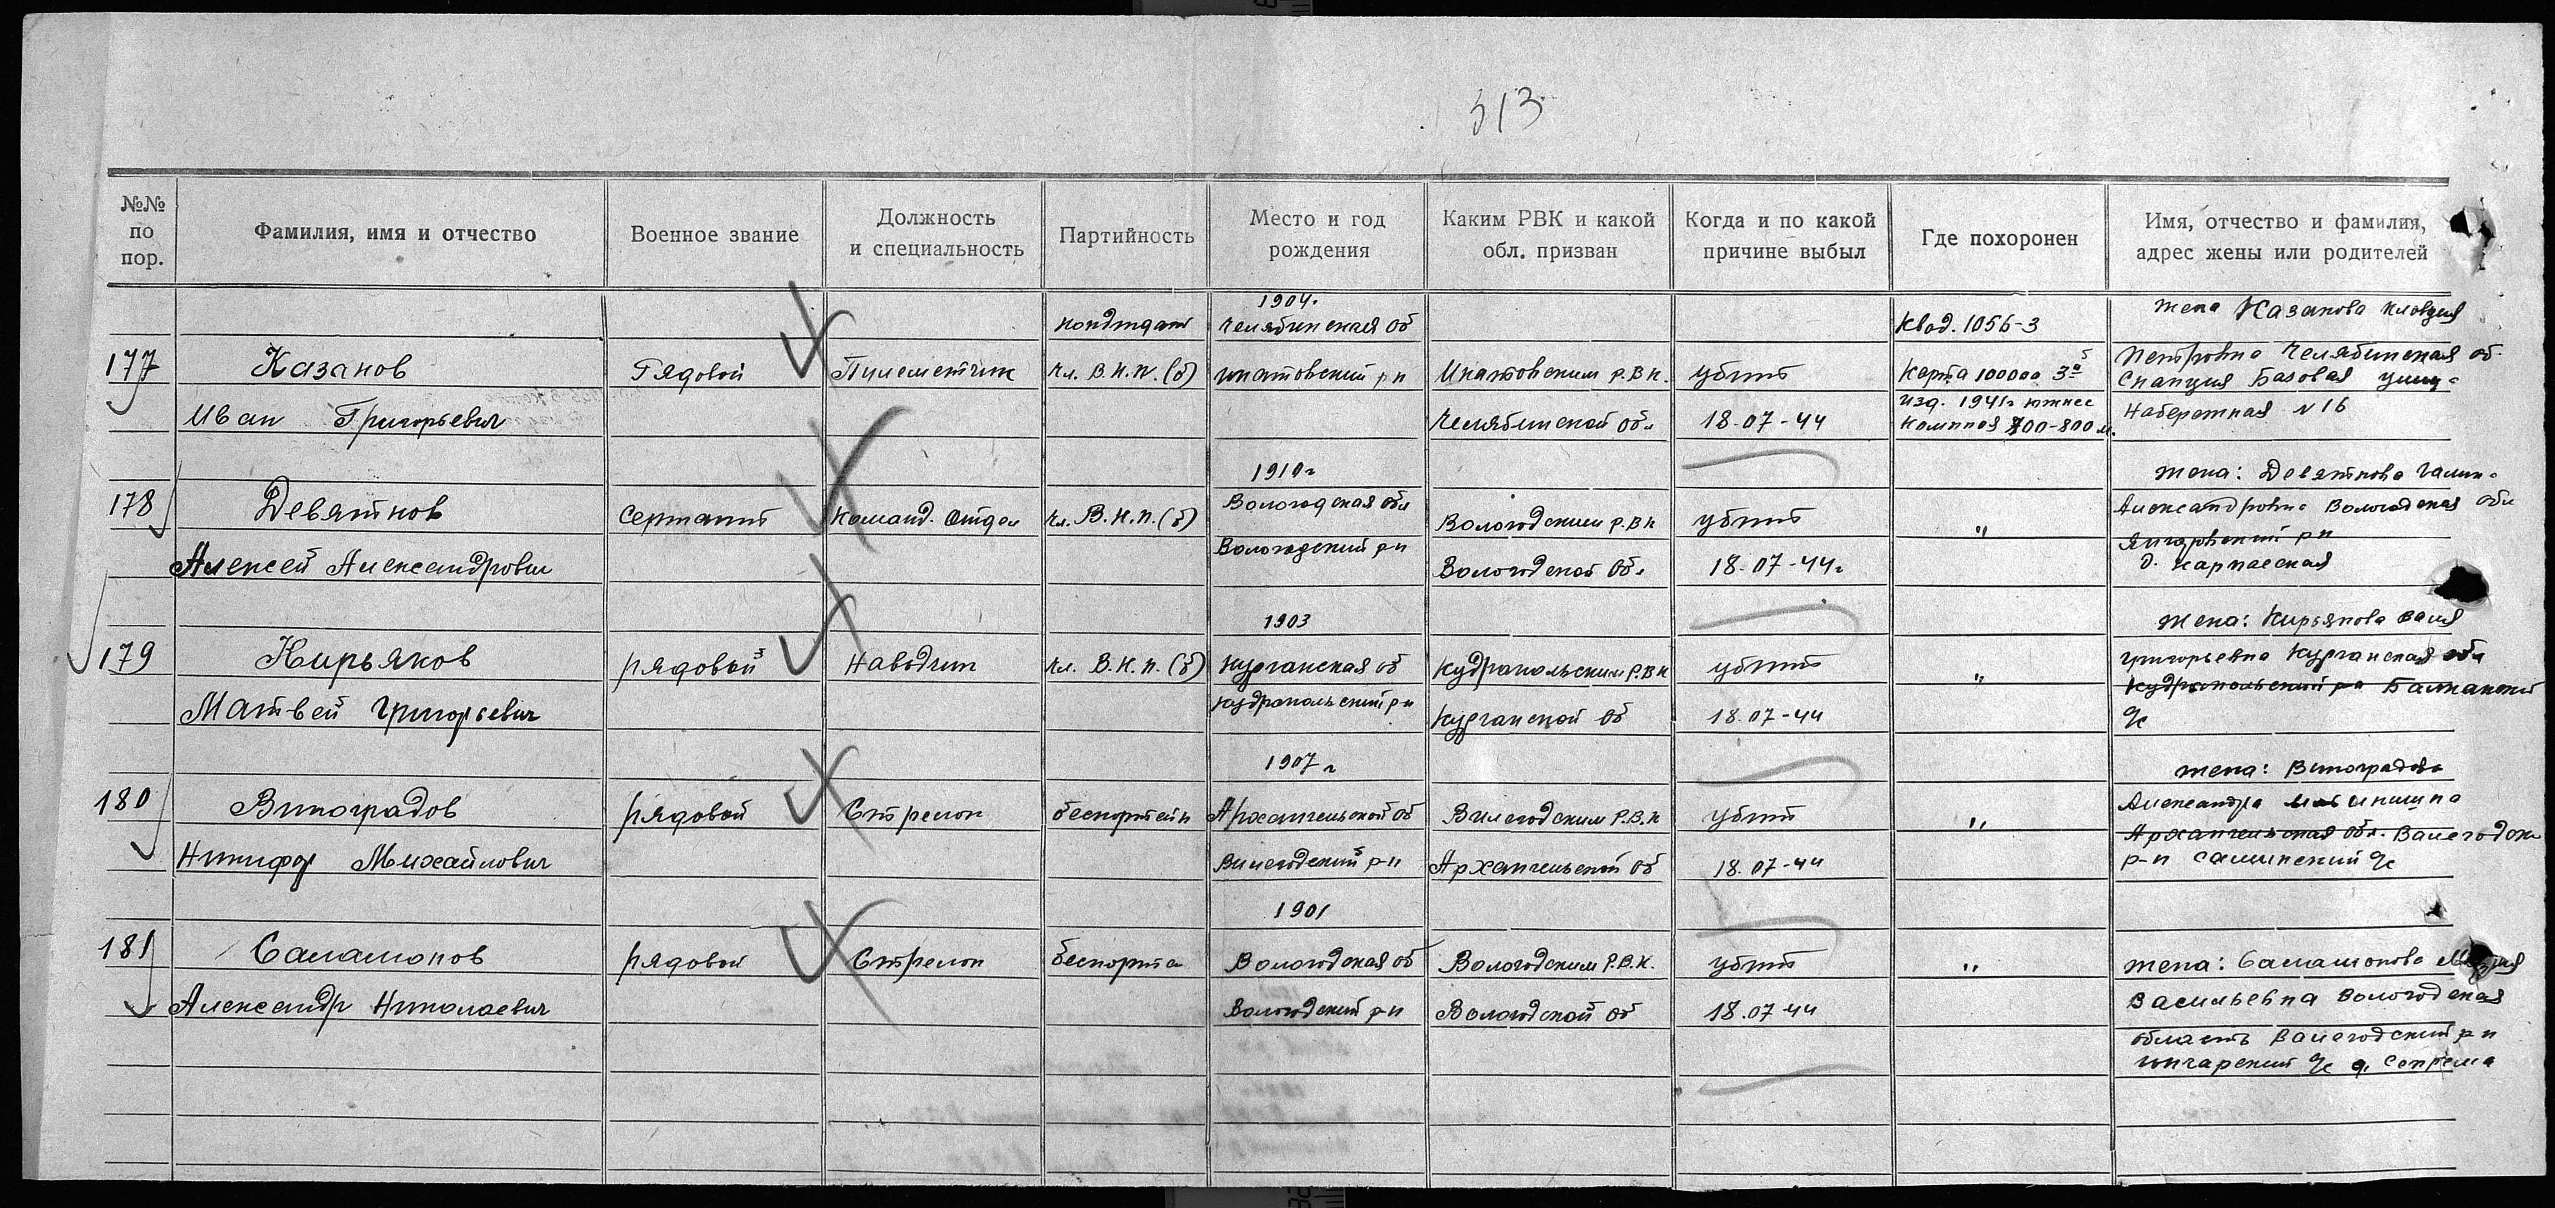 313
№№ по пор.
Фамилия, имя и отчество
Военное звание
Должность и специальность
Партийность
Место и год рождения
Каким РВК и какой обл. призван
Когда и по какой причине выбыл
Где похоронен
Имя, отчество и фамилия, адрес жены или родителей
177
Казанов
Иван Григорьевич
Рядовой
Пулеметчик
кандидат
чл. В.К.П.(б)
1904г
Челябинская об
р-н
р.В.К.
Челябинской обл
убит
18-07-44
Квад. 1056-3
Карта 100000
изд. 1941г южнее
700-800 м.
жена Казанова Клавдия
Петровна Челябинская об.
Станция Базовая улиц
Набережная N 16
178
Девятков
Алексей Александрович
Сержант
Команд. отдел
чл. В.К.П.(б)
1910г
Вологодская обл
Вологодский р-н
Вологодским р.В.К
Вологодской об.
убит
18-07-44г
"
жена: Девяткова Галин
Александровна Вологодская обл
р-н
д.
179
Кирьяков
Матвей Григорьевич
рядовой
Наводчик
чл. В.К.П.(б)
1903
Курганская об
р-н
Р.В.К
Курганской об
убит
18.07-44
"
жена: Кирьякова
Григорьевна Курганская обл
р-н
с/с
180
Виноградов
Никифор Михайлович
рядовой
Стрелок
беспартейн
1907г
Архангельской об
Вилегодский р-н
Вилегодским Р.В.К
Архангельской об
убит
18.07-44
"
жена: Виноградова
Александра
Архангельская обл.
р-н с/с
181
Саламонов
Александр Николаевич
рядовой
Стрелок
беспорта
1901
Вологодская об
Вологодский р-н
Вологодским Р.В.К.
Вологодской об
убит
18.07-44
"
жена: Саламонова Мария
Васильевна Вологодская
область р-н
с/с д.